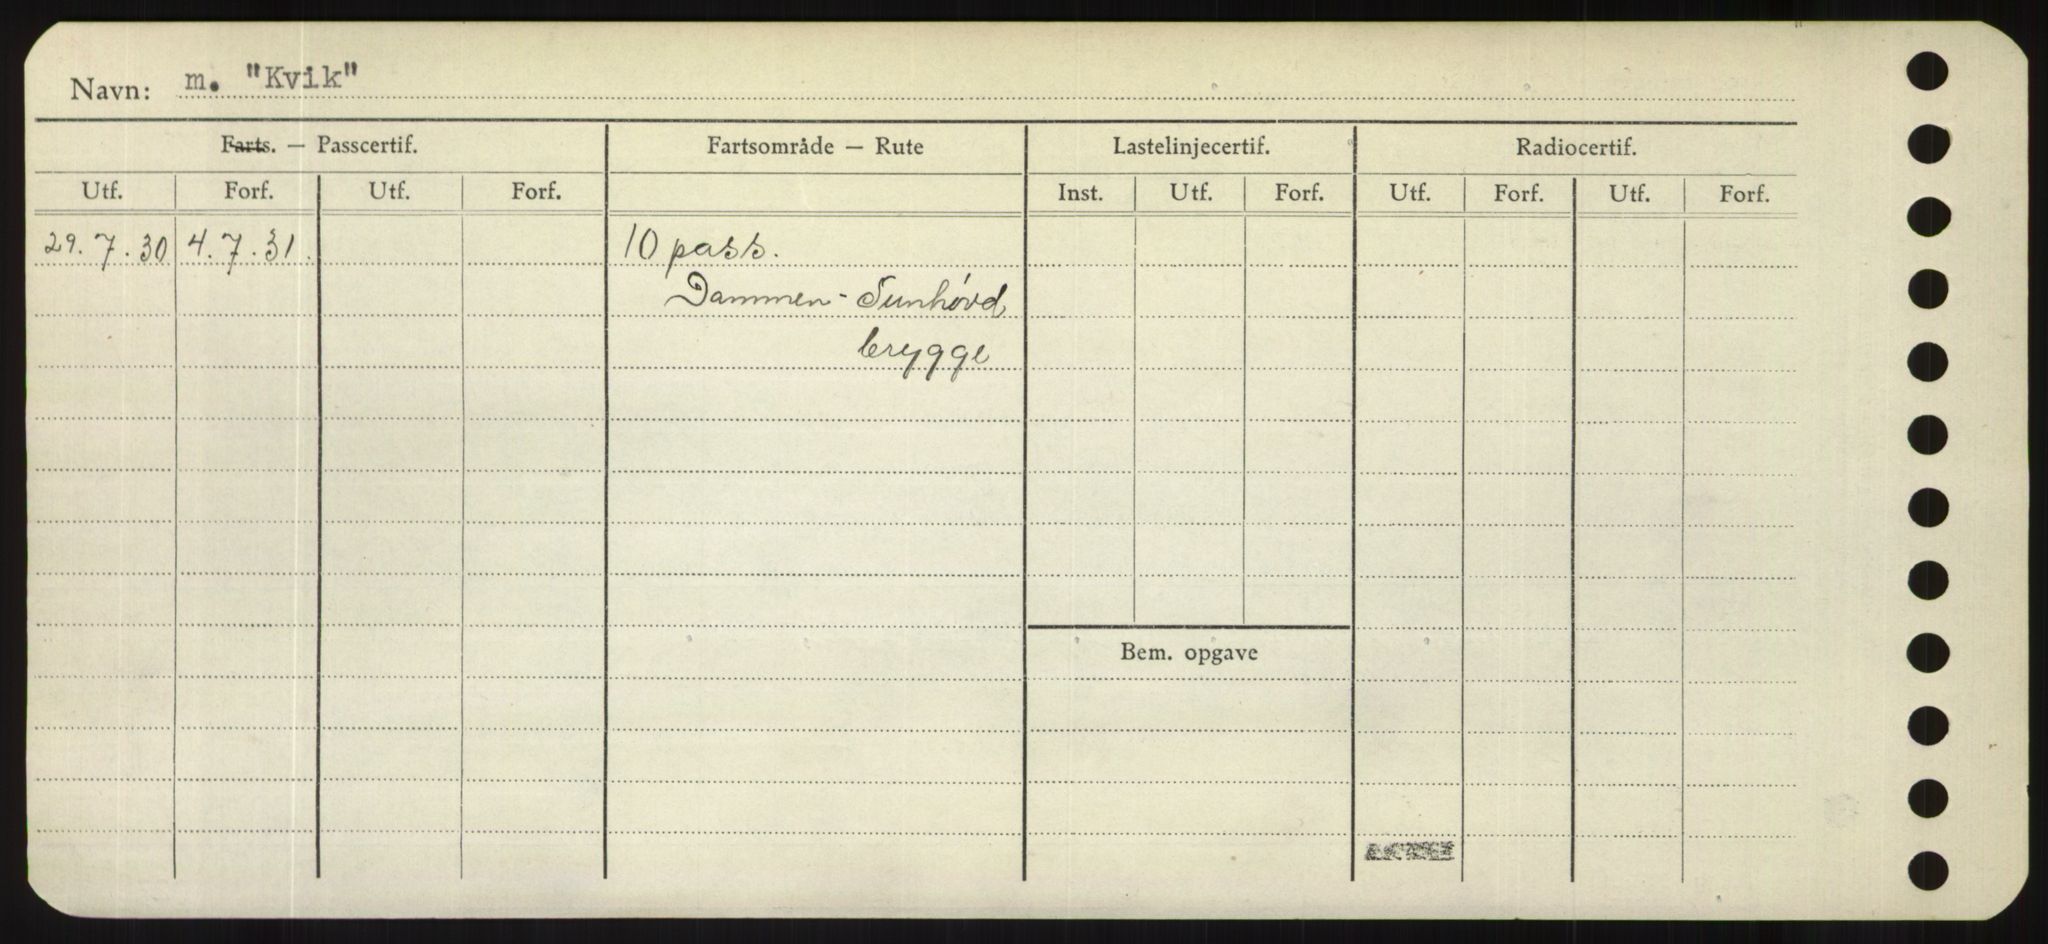 Navn: m. "Kvik"
Farts. — Passcertif. Fartsområde — Rute Lastelinjecertif. Radiocertif.
Utf. Forf. Utf. Forf. Inst. Utf. Forf. Utf. Forf. Utf. Forf.
29.7.30 4.7.31. 10 pass.
Dammen - Tunhóvd
brygge
Bem. opgave